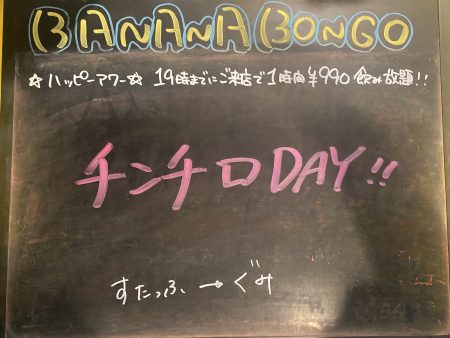 BANANA BONGO
☆ハッピーアワー☆ 19時までにご来店で1時間¥990飲み放題!!
チンチロDAY!!
すたっふ→ぐみ